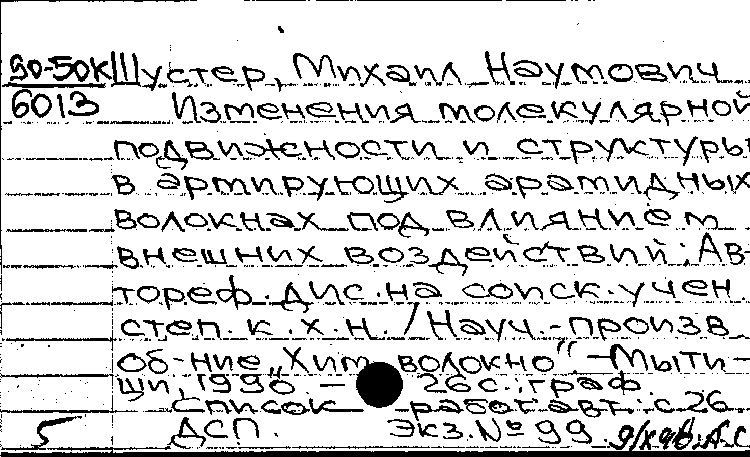 90-50К Шустер, Михаил Наумович
6013 Изменения молекулярной
подвижности и структуры
в армирующих арамидных
волокнах под влиянием
внешних воздействий: Ав-
тореф. дис. на соиск. учен.
степ. к.х.н. / Науч.-произв.
об-ние „Хим. волокно“. - Мыти-
щи, 1990 - 26 с.: граф
Список работ авт.: с. 26
5 ДСП. Экз. № 99